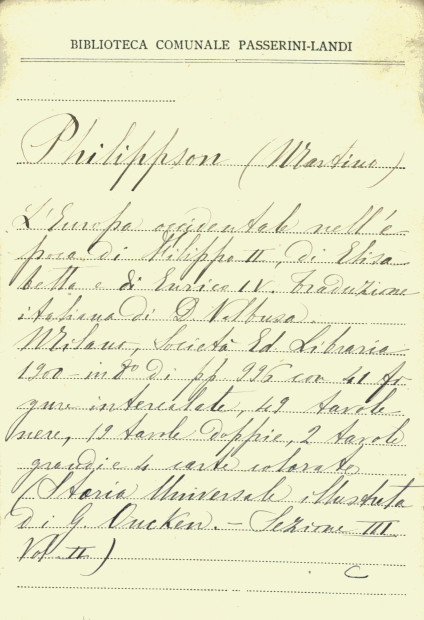 BIBLIOTECA COMUNALE PASSERINI-LANDI
Philippson (Martino)
L'Europa occidentale nell'e-
poca di Filippo II, di Elisa-
betta e di Enrico IV. Traduzione
italiana di D. Valbusa.
Milano, Società Ed. Libraria
1900 - in 8º di pp 996 con 41 fi-
gure intercalate, 49 tavole
nere, 19 tavole doppie, 2 tavole
grandi e 4 carte colorate
(Storia Universale illustrata
di G. Oncken. - Sezione III
Vol. II)